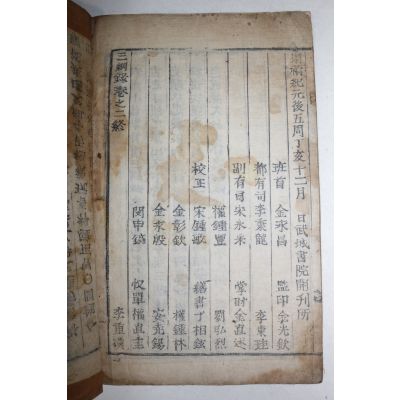 禎紀元後五周丁亥十二月 日武城書院開刊所
班首 金永昌 監印 金光欽
都有司 李秉龍 李東珪
副有司 宋永來 掌財 金直述
權鍾豊 劉弘烈
校正 宋鍾敏 書 丁相鉉
金彰欽 權鍾林
金永殷 安錫
閔申鎬 收單 權直圭
李重漢
三綱錄卷之二終